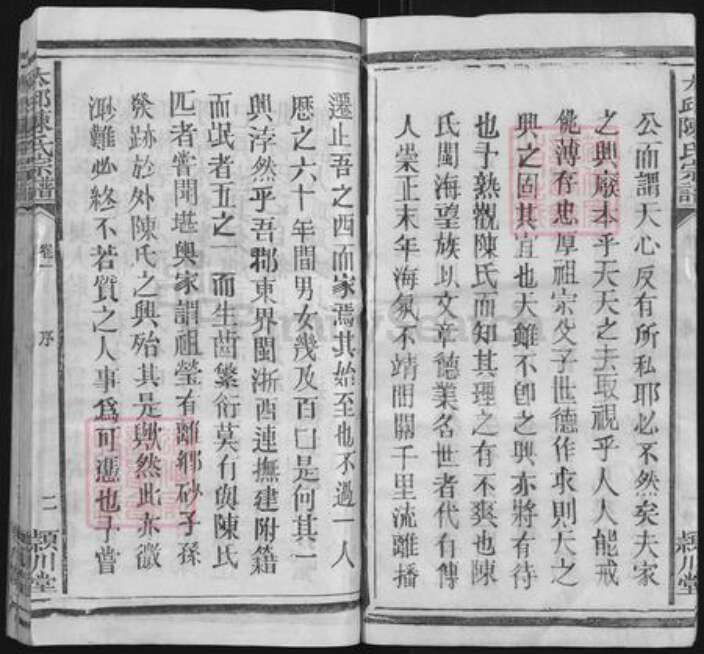 太邱陳氏宗譜
公而謂天心反有所私耶必不然矣夫家
之興廢本乎天天之去取視乎人人能戒
佻薄存忠厚祖宗父子世德作求則天之
興之固其宜也夫雖不卽之興亦將有待
也予熟觀陳氏而知其理之有不爽也陳
氏閩海望族以文章德業名世者代有傳
人崇正末年海氛不靖間關千里流離播
潁川堂
遷止吾之西而家焉其始至也不過一人
歷之六十年間男女幾及百口是何其一
興浡然乎吾鄀東界閩浙西連撫建附籍
而氓者五之一而生齒繁衍莫有與陳氏
匹者嘗聞堪輿家謂祖塋有離鄉砂子孫
發跡於外陳氏之興殆其是歟然此亦微
渺難必終不若質之人事爲可憑也予嘗
太邱陳氏宗譜
卷一
序
二
潁川堂